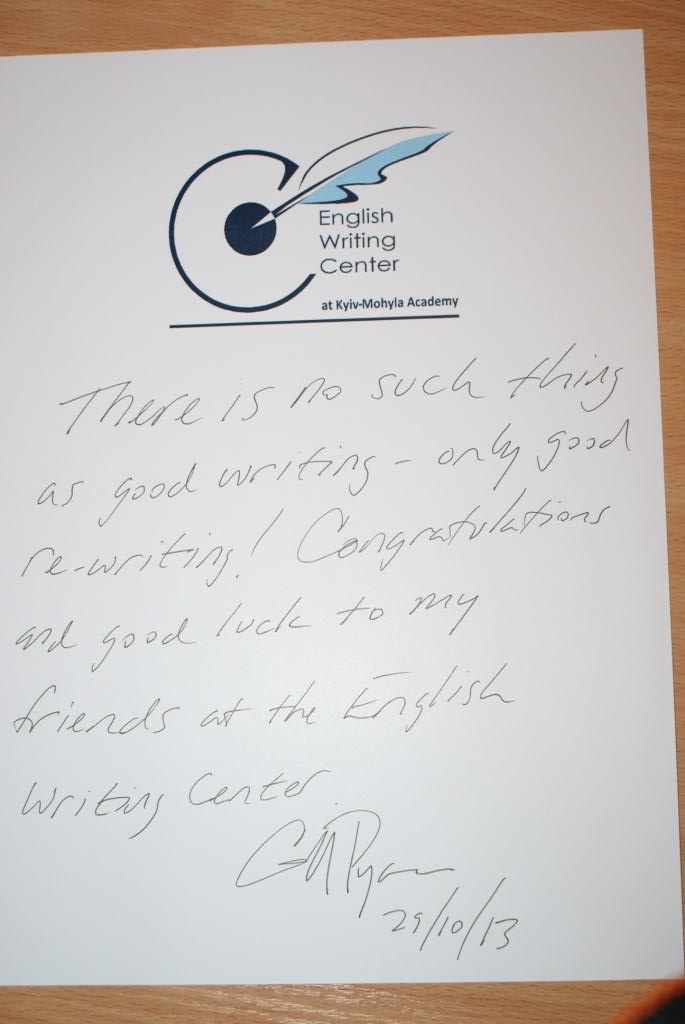 English
Writing
Center
at Kyiv-Mohyla Academy
There is no such thing
as good writing - only good
re-writing! Congratulations
and good luck to my
friends at the English
Writing Center.
29/10/13